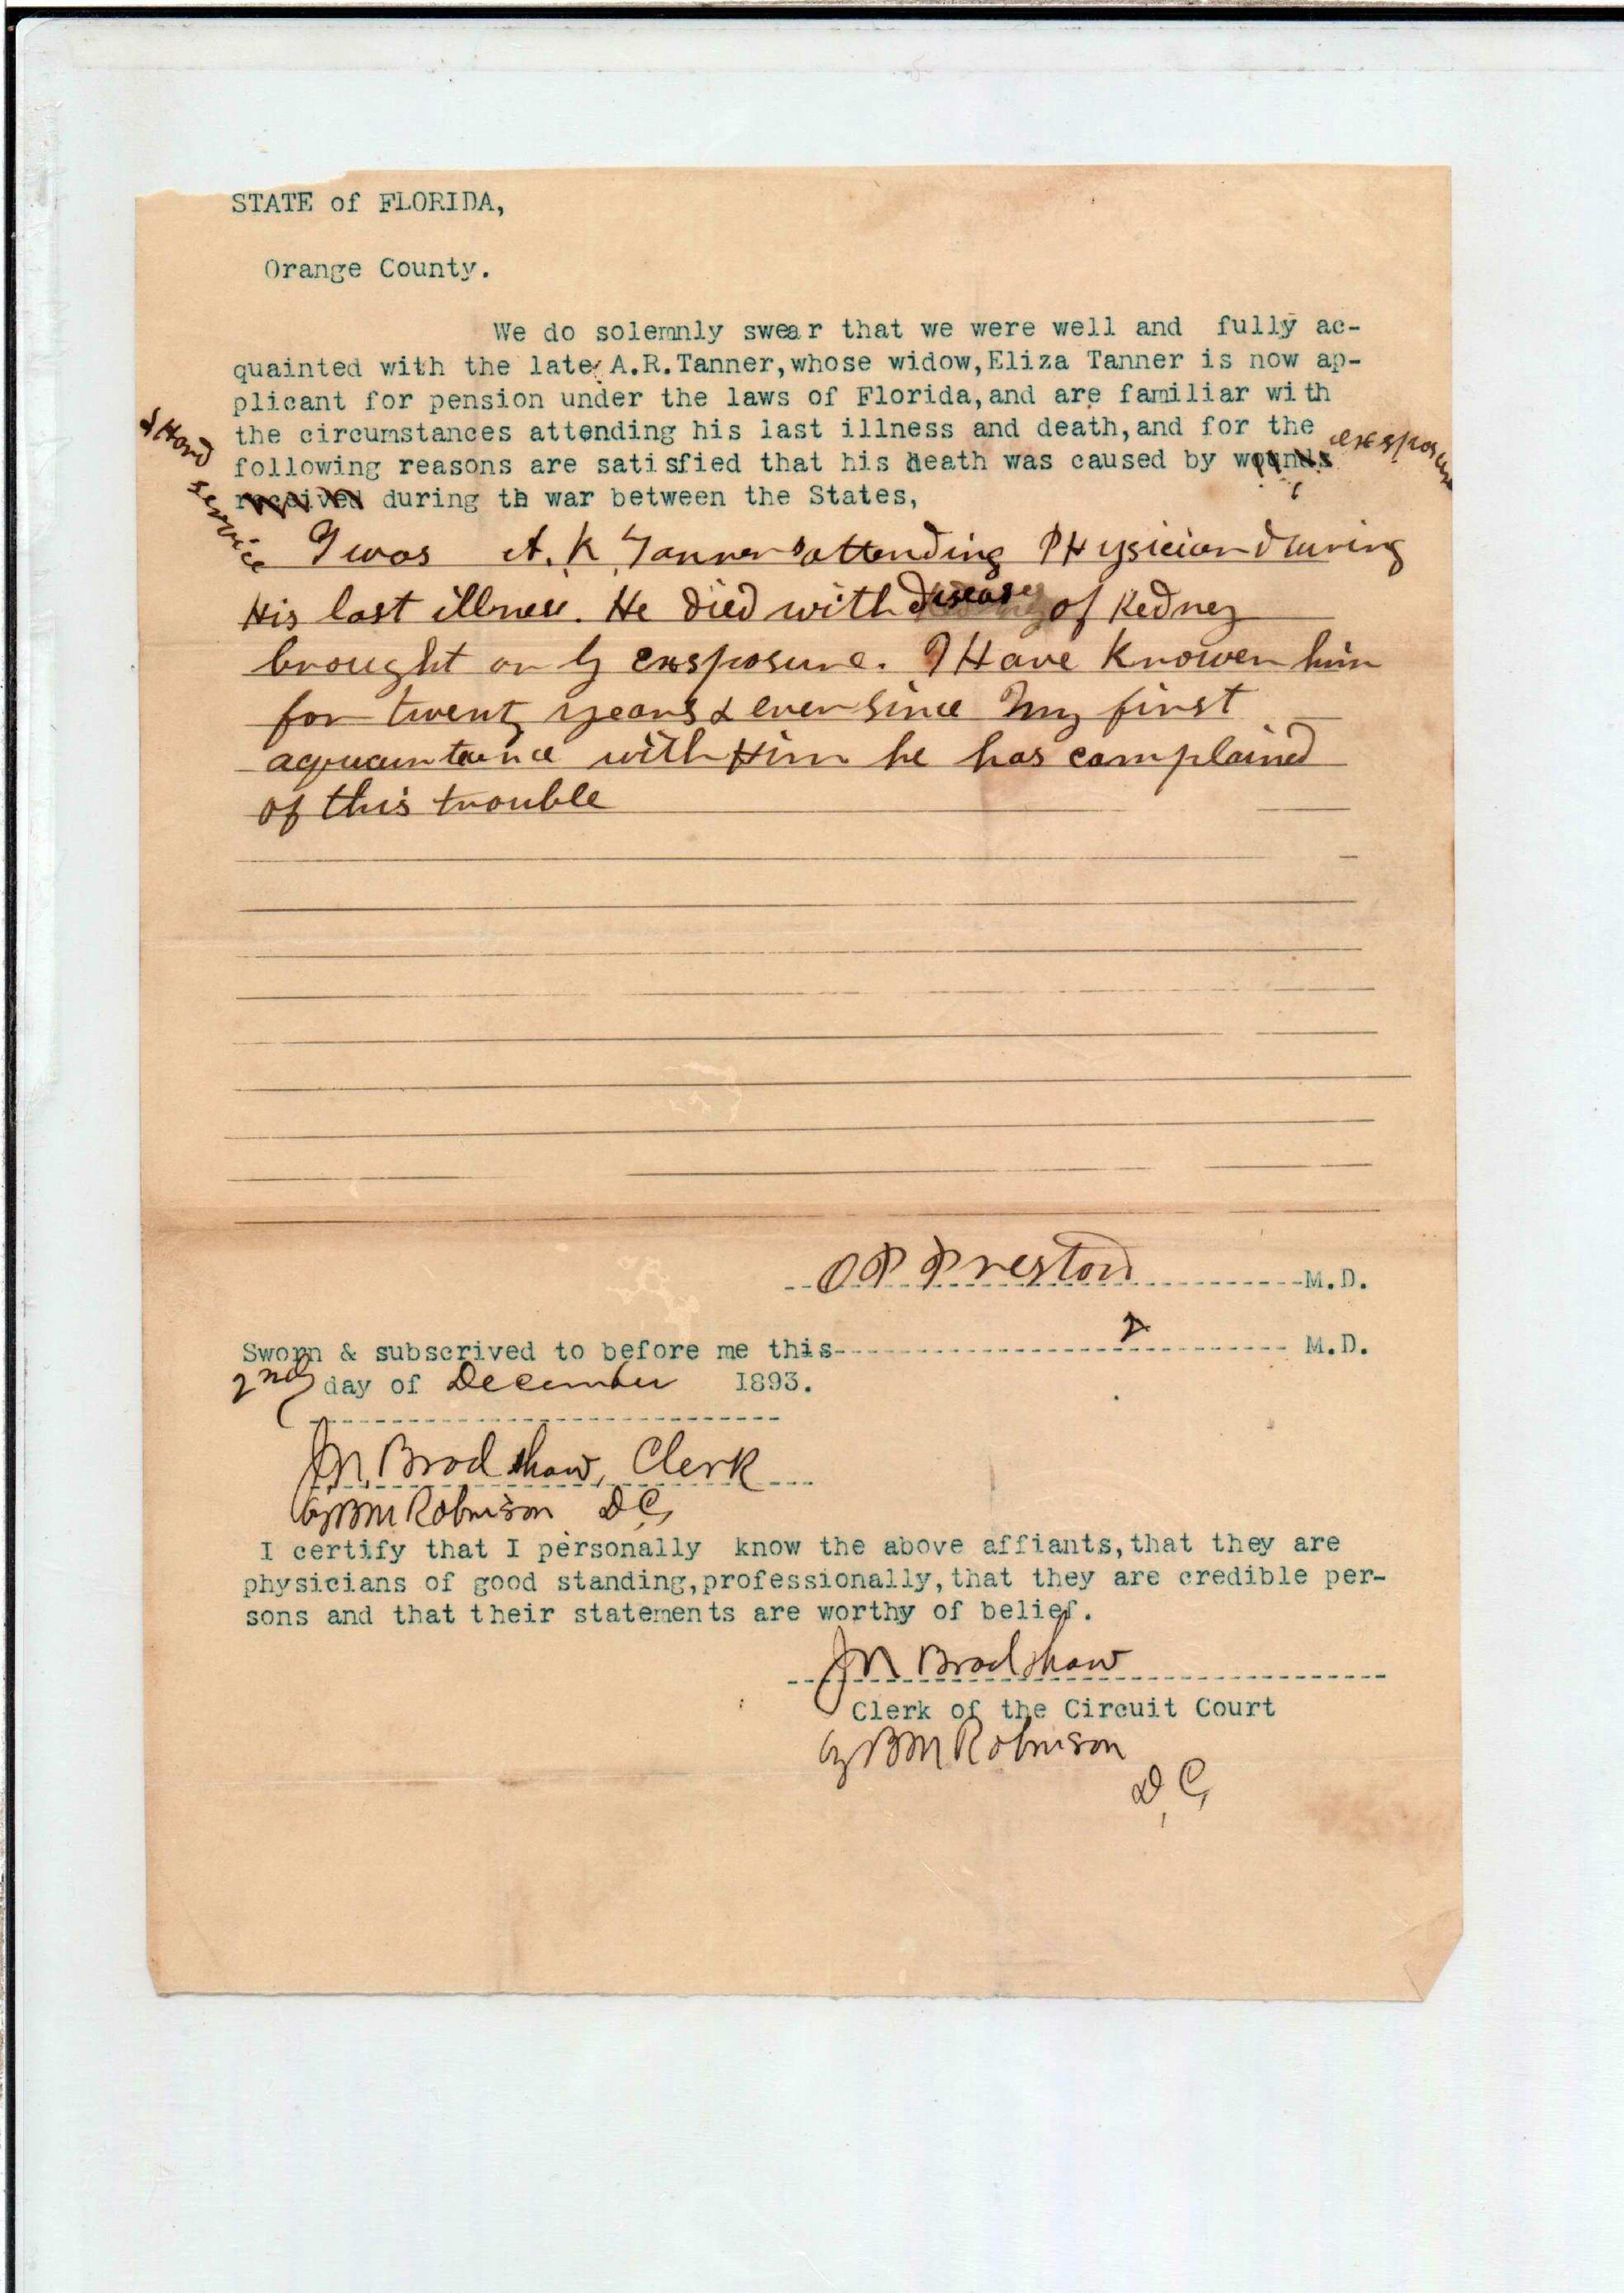 STATE of FLORIDA,
Orange County.
We do solemnly swear that we were well and fully ac-
quainted with the late A.R.Tanner,whose widow,Eliza Tanner is now ap-
plicant for pension under the laws of Florida,and are familiar with
the circumstances attending his last illness and death,and for the
following reasons are satisfied that his death was caused by wounds exsposure
& Hard service
received during th war between the States,
I was A. R. Tanners attending PHysician During
His last illness. He Died with Disease of Kedney
brought on by exsposure. I Have Knowen him
for twenty years & ever since My first
aqucuntance with Him he has complained
of this trouble
O P Preston M.D.
Sworn & subscrived to before me this M.D.
2nd day of December 1893.
J.N. Bradshaw, Clerk
By BM Robinson D.C,
I certify that I personally know the above affiants,that they are
physicians of good standing,professionally,that they are credible per-
sons and that their statements are worthy of belief.
JN Bradshaw
Clerk of the Circuit Court
By BM Robinson
D,C,